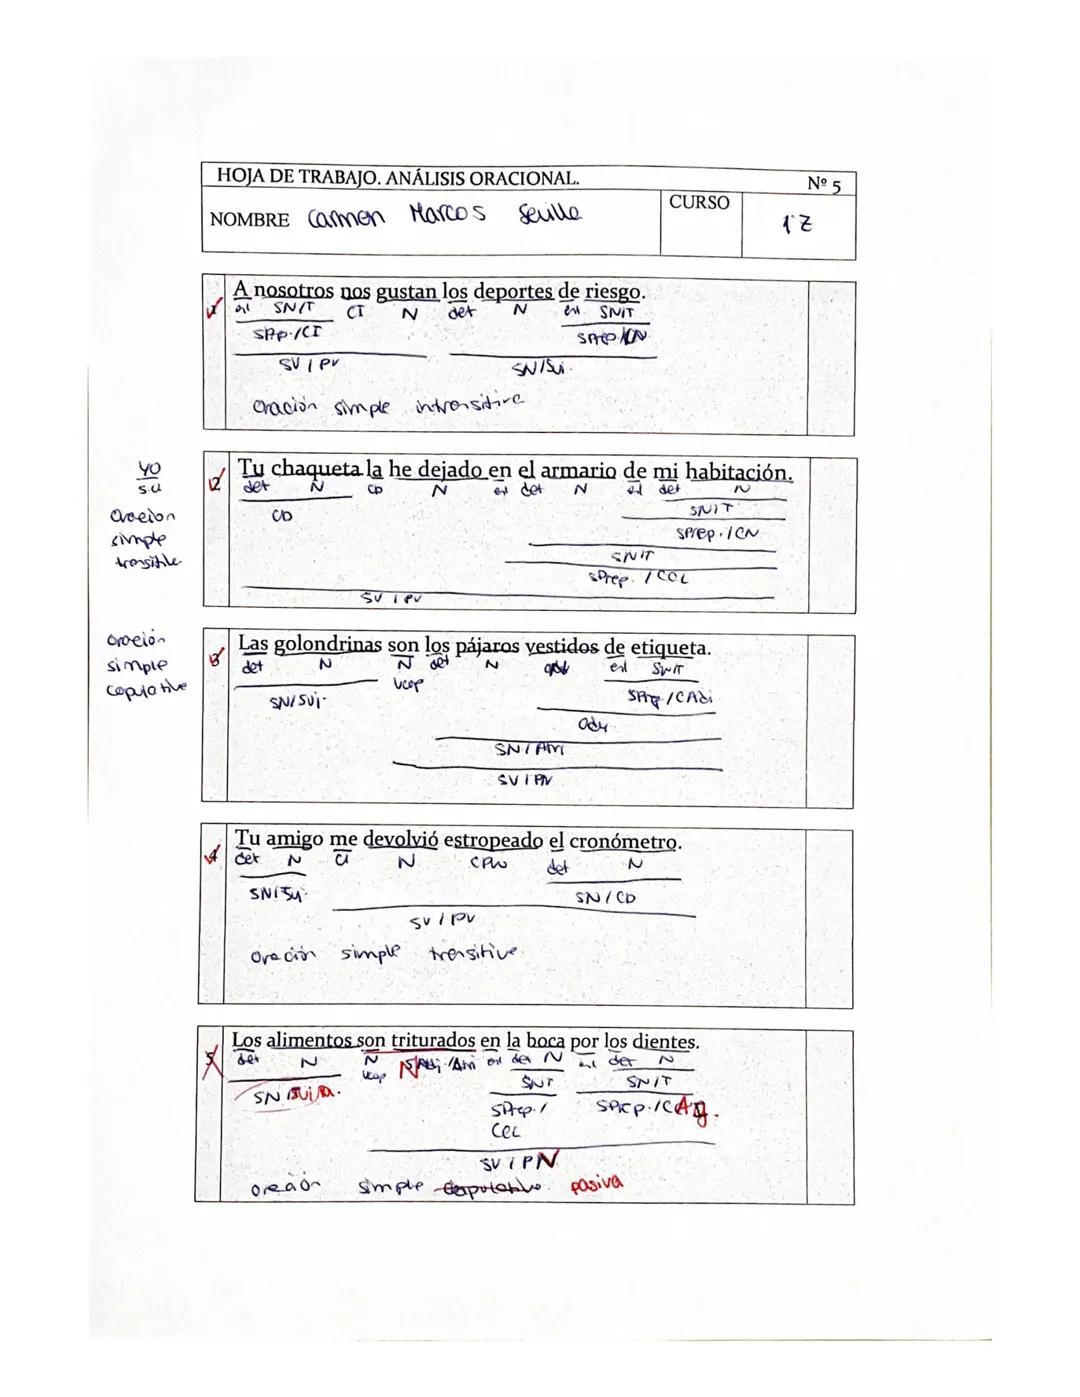 HOJA DE TRABAJO. ANÁLISIS ORACIONAL. Nº 5
NOMBRE Carmen Marcos Sevilla CURSO 1ºZ
1 A nosotros nos gustan los deportes de riesgo.
enl SN/T CI N det N enl SN/T
SPrep./CI SPrep/CN
SV / PV SN/Suj.
Oración simple intransitiva
2 Tu chaqueta la he dejado en el armario de mi habitación.
YO
S.U
Oración
simple
transitible
det N CD N enl det N enl det N
CD SN/T
SPrep./CN
SN/T
SPrep. / CCL
SV / PV
3 Las golondrinas son los pájaros vestidos de etiqueta.
Oración
simple
copulative
det N N det N adj enl SN/T
vcop
SN/Suj. SPrep/CAdj
adj
SN/Atri
SV / PN
4 Tu amigo me devolvió estropeado el cronómetro.
det N CI N CPvo det N
SN/Suj. SN / CD
SV / PV
Oración simple transitive
5 Los alimentos son triturados en la boca por los dientes.
det N N N SAdj./Atri enl det N enl det N
vcop
SN/T SN/T
SN Suj/pa. SPrep./ SPrep./CAg.
CCL
SV / PV
oración simple copulative. pasiva